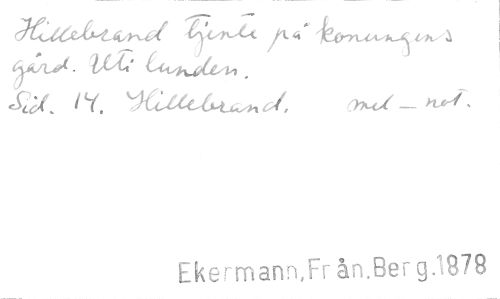 Hillebrand tjente på konungens
gård. Uti lunden.
Sid. 14. Hillebrand. mel-not.
Ekermann, Från. Berg. 1878